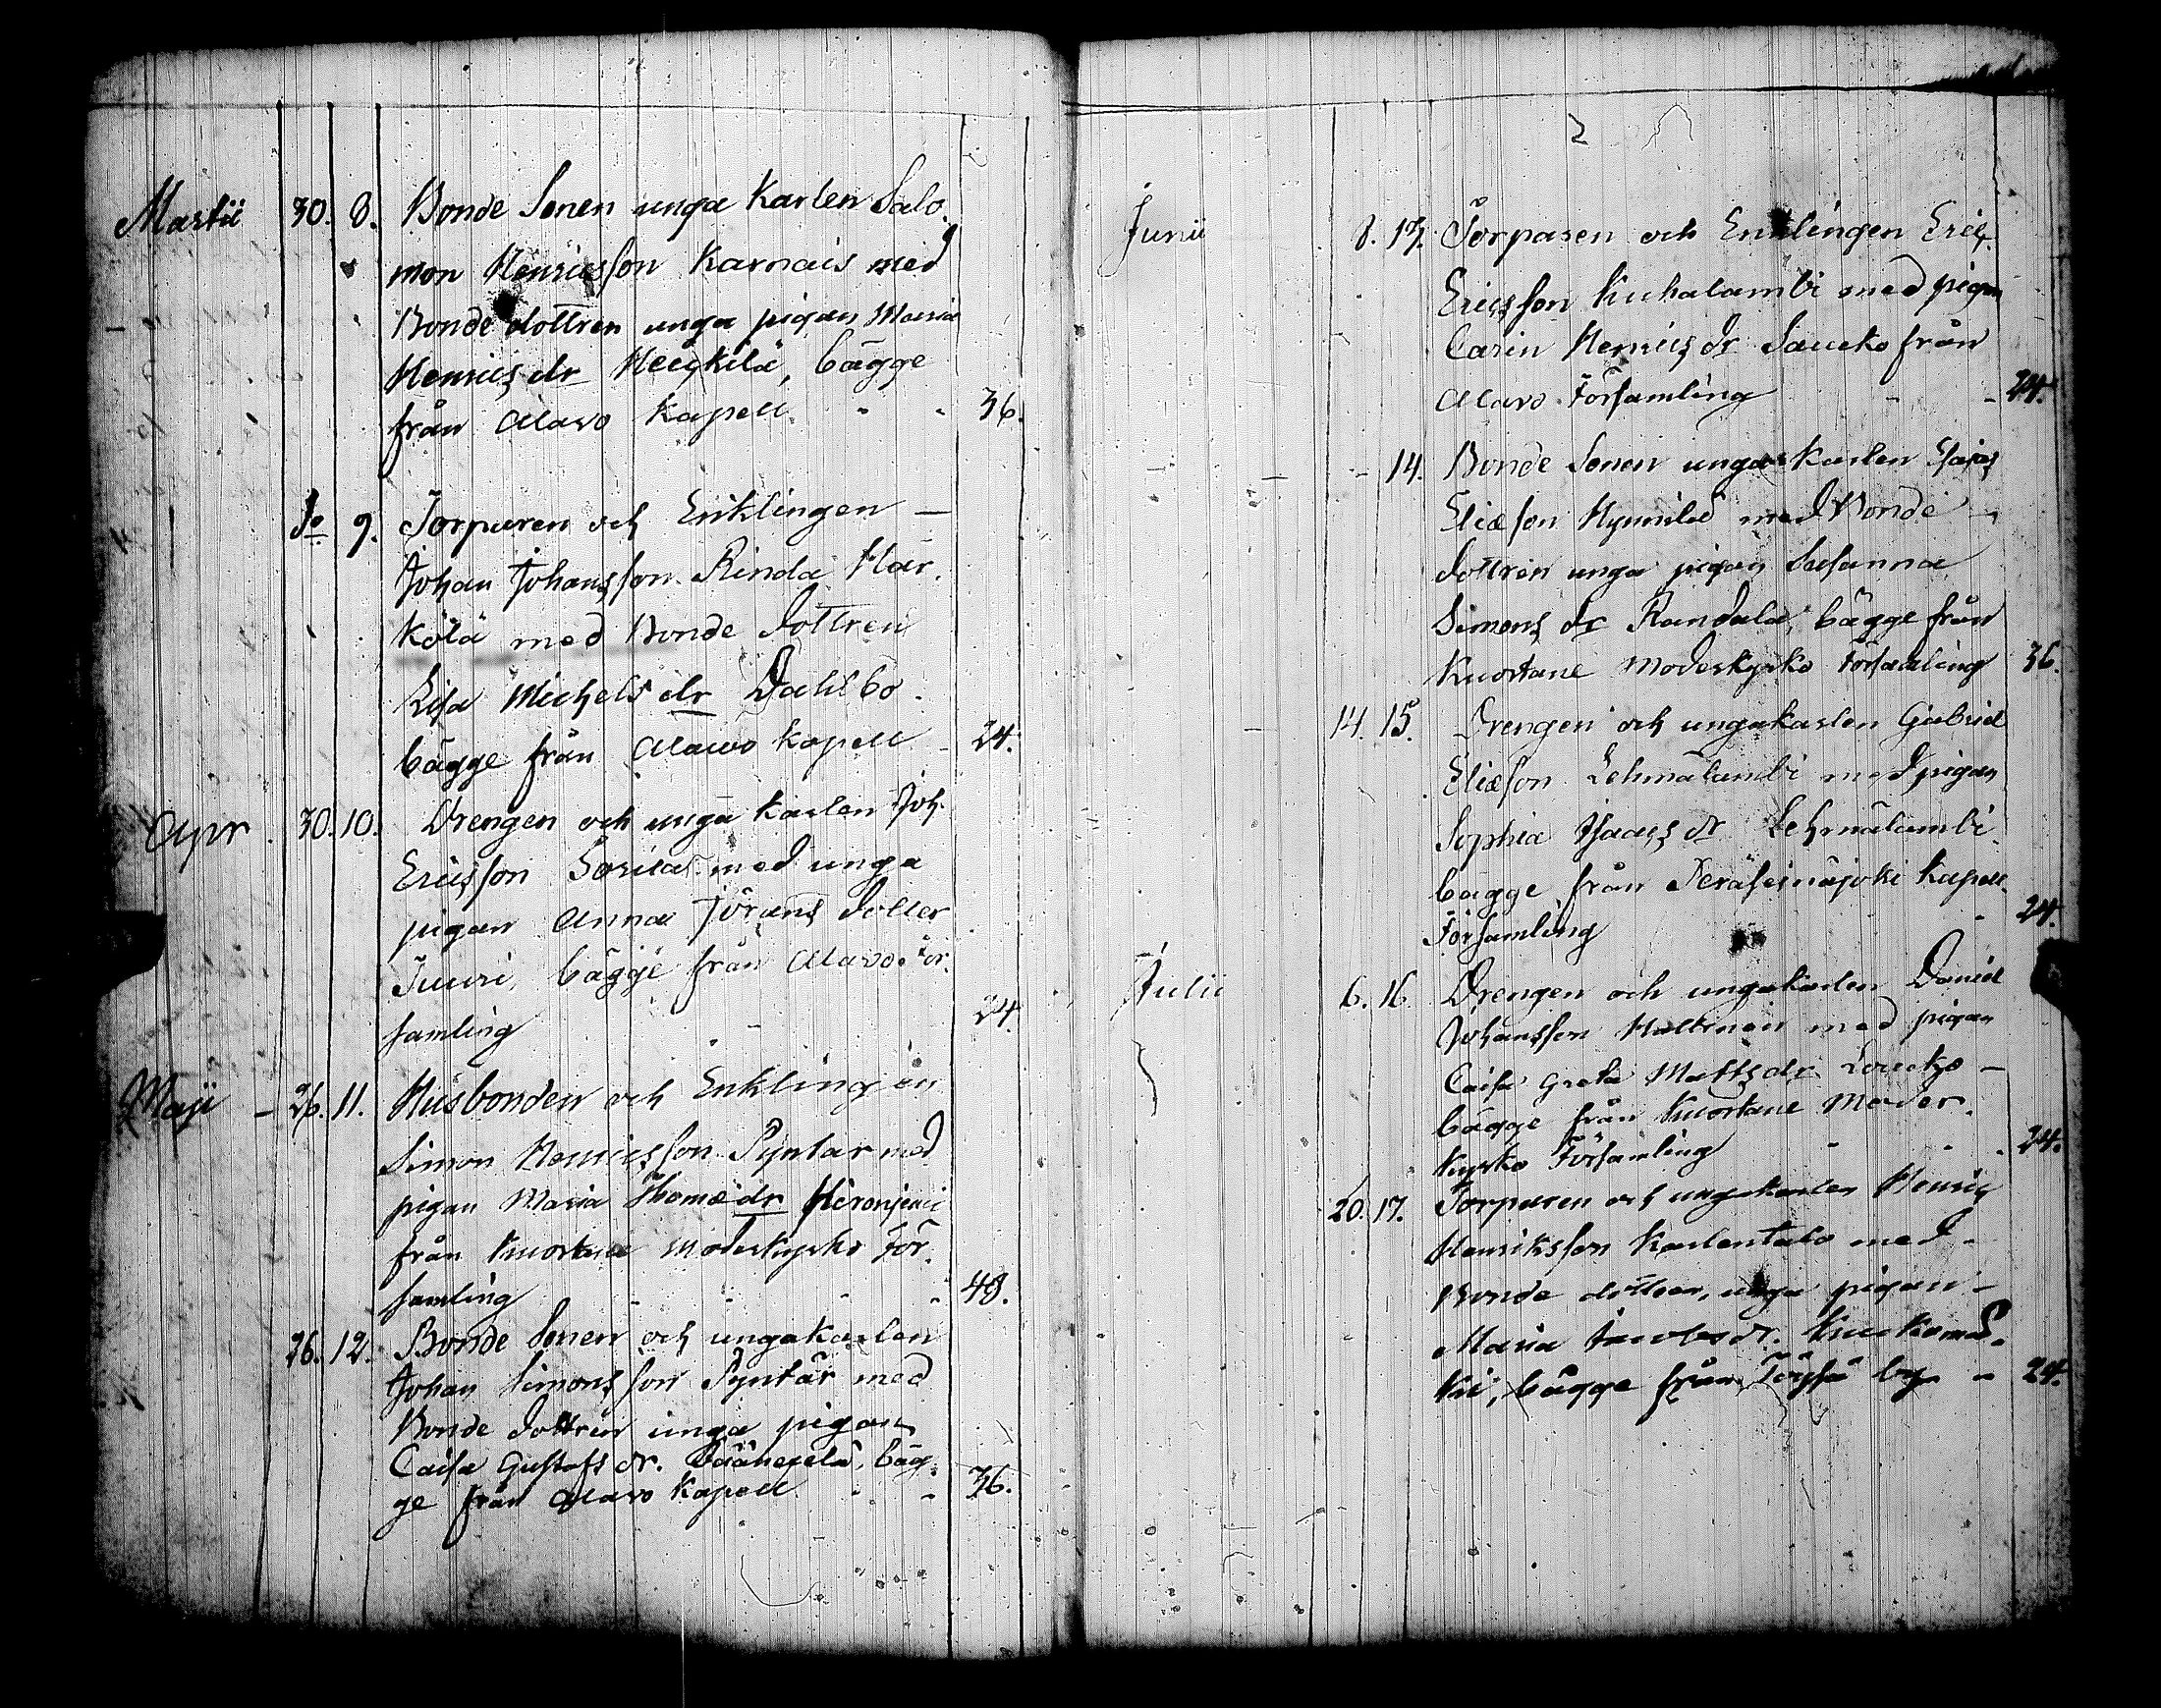 Martii 30. 8. Bonde Sonen unga Karlen Salo
mon Henricsson Karnais med
Bonde dottren unga pigan Maria
Henrics dr Heickilä, bägge
från Alavo Kapell - - 36.
do 9. Torparen och Enklingen —
Johan Johansson Rinda Här.
kölä med Bonde Dottren
Lisa Michels dr Dahlbo.
bägge från Alavo Kapell - 24.
Apr. 30. 10. Drengen och unga karlen Joh.
Ericsson Sorila med unga
pigan Anna Jörans Dotter
Juuri, bägge från Alavo För.
samling - - 24
Maji - 26. 11. Husbonden och Enklingen
Simon Henricsson Pyntar med
pigan Maria Thomæ dr
från Kuortane Moderkyrko För.
samling - - - - 48.
26. 12. Bonde Sonen och ungakarlen
Johan Simonsson Pyntär med
Bonde Dottren unga pigan
Caisa Gustafs dr. bäg.
ge från Alavo Kapell - - 36.
2
Junii 8. 13. Torparen och Enklingen Eric
Ericsson Kuhalambi med pigan
Carin Henrics dr Saucko från
Alavo Församling - - 24.
- 14. Bonde Sonen unga Karlen Esaias
Eliæson med Bonde
dottren unga pigan Susanna
Simons dr Randala, bägge från
Kuortane Moderkyrko Församling 36.
14. 15. Drengen och ungakarlen Gabriel
Eliæson Lehmälambi med pigan
Sophia Isaacs dr Lehmälambi
bägge från Peräseinäjoki Kapell
Församling - 24.
Julii 6. 16. Drengen och ungakarlen Daniel
Johansson Haltinen med pigan
Caisa Greta Matts dr —
bägge från Kuortane Moder.
kyrko Församling - - 24.
20. 17. Torparen och ungakarlen Henric
Henriksson Karlentalo med
Bonde dotter, unga pigan —
Maria Jacobs dr. Kuckomä.
ki, bägge från Töysä by - 24.